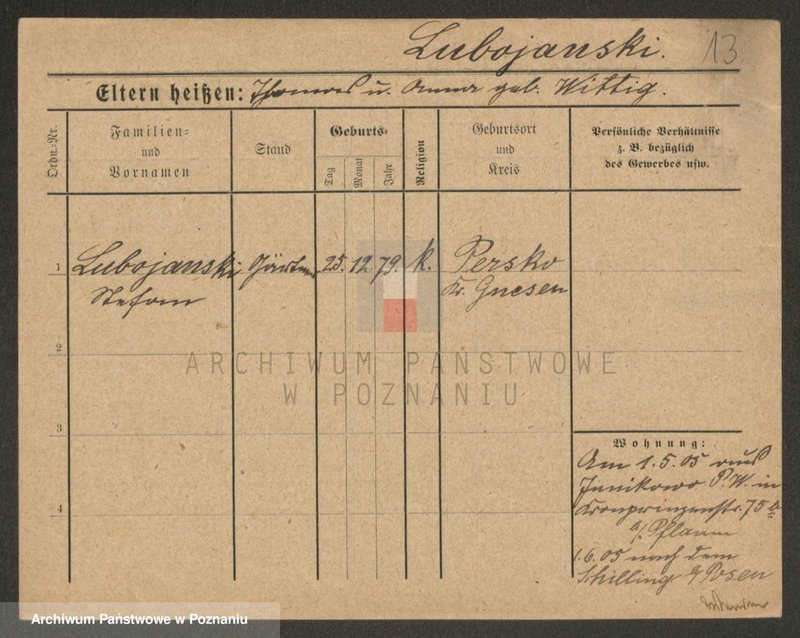 Lubojanski. 13
Eltern heißen: Thomas u. Anna geb. Wittig.
Ordn.-Nr.
Familien-
und
Vornamen
Stand
Geburts-
Tag
Monat
Jahr
Religion
Geburtsort
und
Kreis
Persönliche Verhältnisse
z. B. bezüglich
des Gewerbes usw.
1 Lubojanski Gärtner 25. 12. 79. k. Persko
Stefan Kr. Gnesen
2
3
4
ARCHIWUM PAŃSTWOWE
W POZNANIU
Wohnung:
Am 1.5.05 aus
Junikowo P.W. in
Kronprinzenstr. 75a
b/ Pflaum
1.6.05 nach dem
Schilling b/ Posen
Archiwum Państwowe w Poznaniu